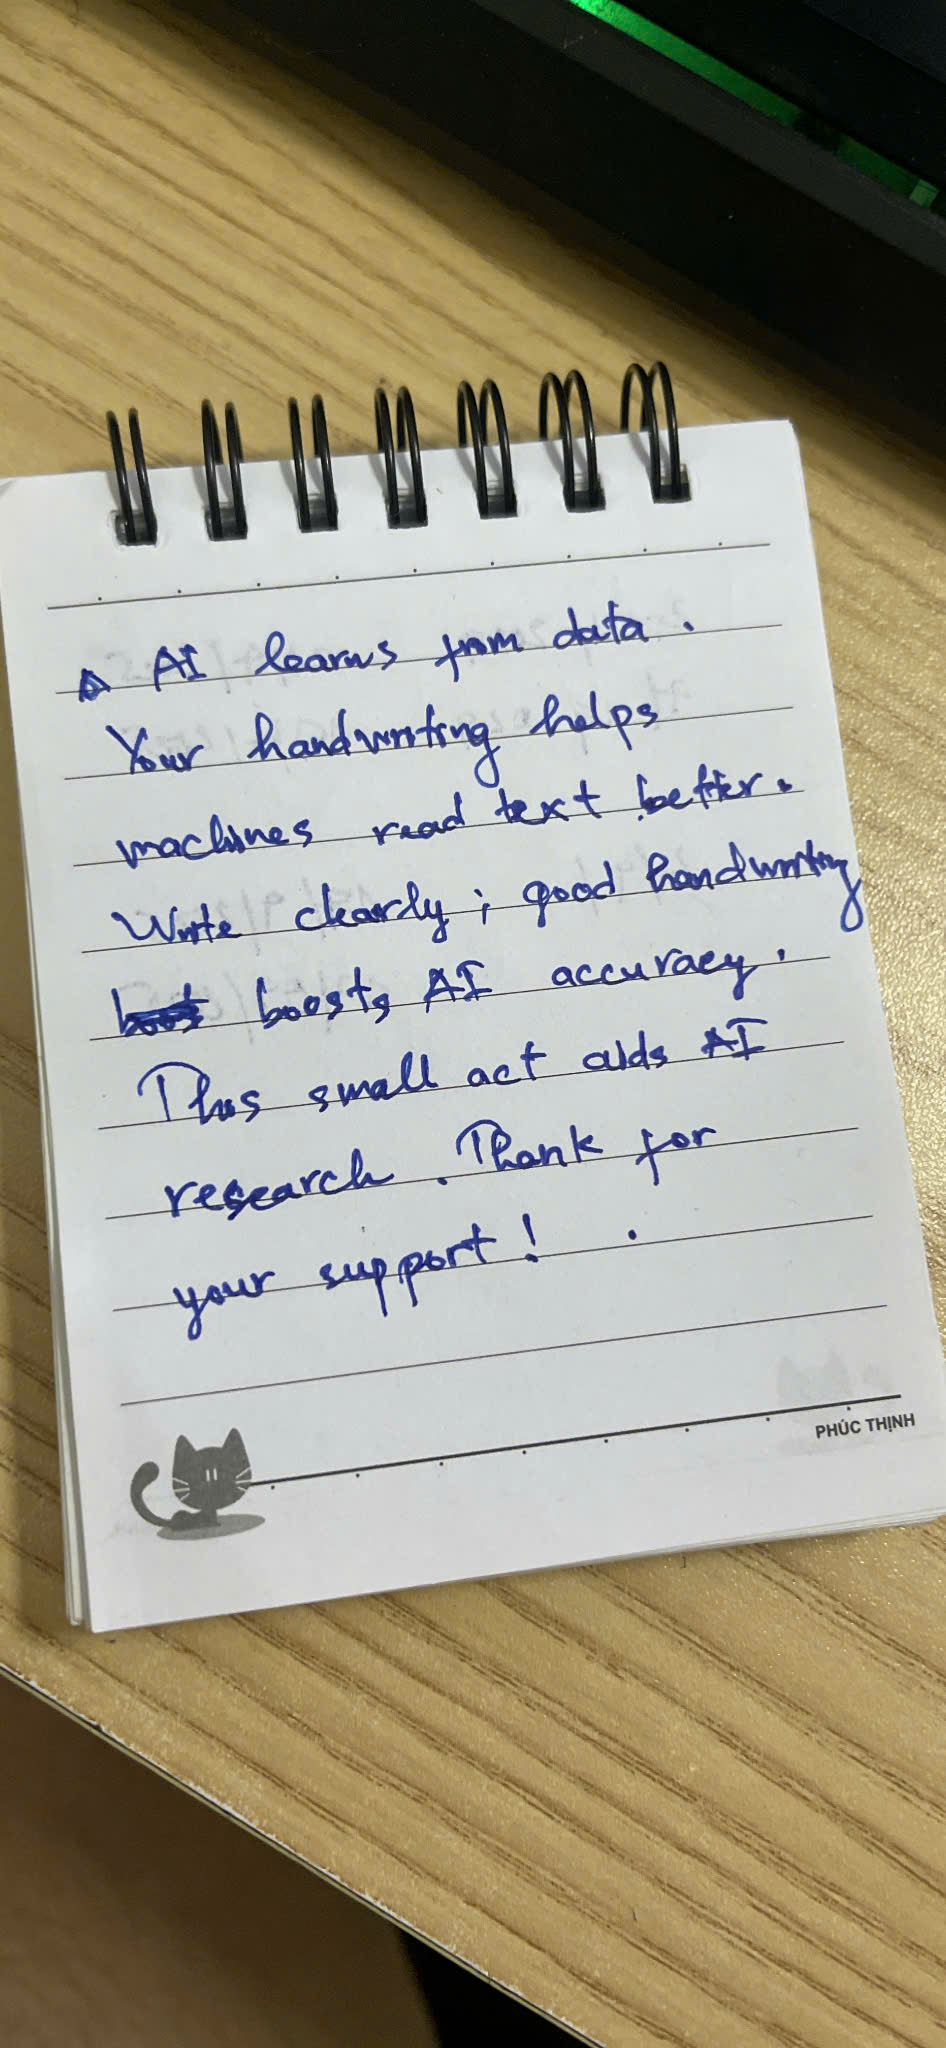 AI learns from data.
Your handwriting helps
machines read text better.
Write clearly; good handwriting
boosts AI accuracy.
This small act aids AI
research. Thank for
your support!
PHÚC THỊNH